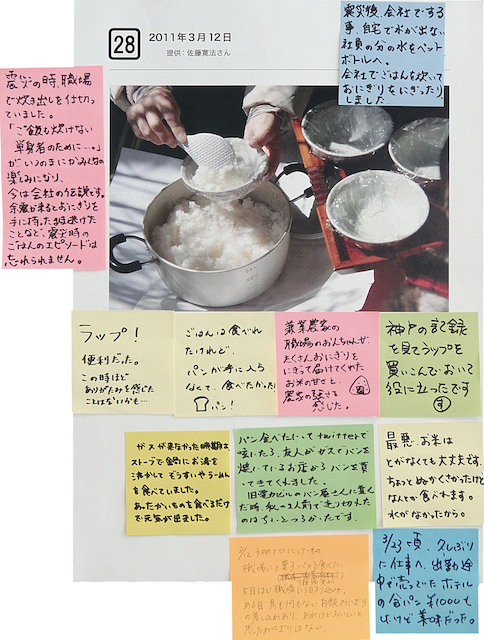 28
2011年3月12日
提供：佐藤寛法さん
震災後、会社でする
事、自宅で水が出ない
社員の分の水をペット
ボトルへ。
会社でごはんを炊いて
おにぎりをにぎったり
しました
震災の時、職場
で炊き出しを仕切っ
ていました。
「ご飯も炊けない
単身者のために…。」
がいつのまにかみんなの
楽しみになり、
今は会社の伝説です。
余震が来るとおにぎりを
手に持ったまま逃げた
ことなど、震災時の
ごはんのエピソードは
忘れられません。
ラップ！
便利だった。
この時ほど
ありがたみを感じた
ことはないかも…
ごはんは食べれ
たけれど、
パンが手に入ら
なくて、食べたかった!
パン!
兼業農家の
職場のおんちゃんが、
たくさんおにぎりを
にぎって届けてくれた
お米の甘さと、
農家の強さを
感じた。
神戸の記録
を見てラップを
買いこんでおいて
役に立ったです
ガスが来なかった時期は、
ストーブで鍋にお湯を
沸かして ぞうすいやらーめん
を食べていました。
あったかいものを食べるだけ
で元気が出ました。
パン食べたいってtwitterで
呟いたら、友人がガスでパンを
焼いているお店からパンを買っ
てきてくれました。
パン屋さんに並ん
だ時、私の2人前で売り切れた
のはちょっとつらかったです。
最悪、お米は
とがなくても大丈夫です。
ちょっとぬかくさいかもだけど
なんとか食べれます。
水がなかったから。
3/12 初めて口にしたもの。
職場にて菓子パンを食べた。
5日ほど職場に泊まり
ある日、具も何もない 自飯おにぎり
の差し入れあり、あれほどおいしいと
思ったおにぎりはない。
3/23頃、久しぶり
に仕事へ、出勤途
中で売ってたホテル
の食パン ¥1000も
したけど美味だった。